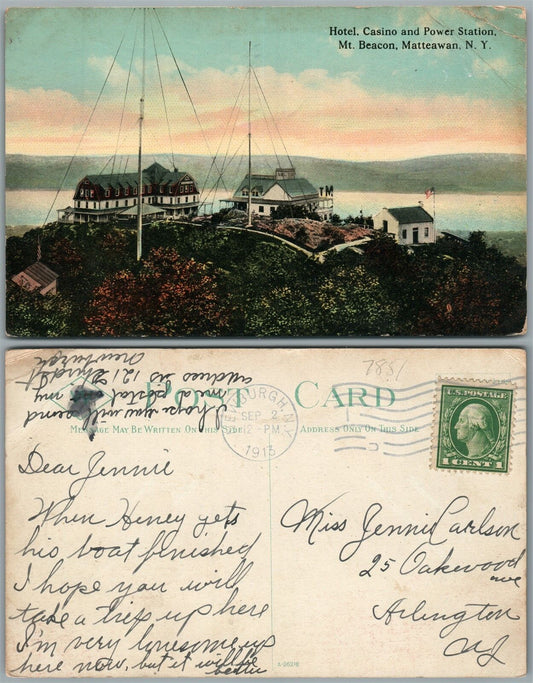 Hotel, Casino and Power Station,
Mt. Beacon, Matteawan, N. Y.
7881
POST CARD
MESSAGE MAY BE WRITTEN ON THIS SIDE
ADDRESS ONLY ON THIS SIDE
NEWBURGH, N.Y.
SEP 2
12-PM
1913
U.S. POSTAGE
1 CENT 1
I hope you will send
me a postal, my
address is 121 3rd St
Newburgh
Dear Jennie
When Henry gets
his boat finished
I hope you will
take a trip up here
I'm very lonesome up
here now, but it will be
better
Miss Jennie Carlson
25 Oakwood
ave
Arlington
NJ
A-26216